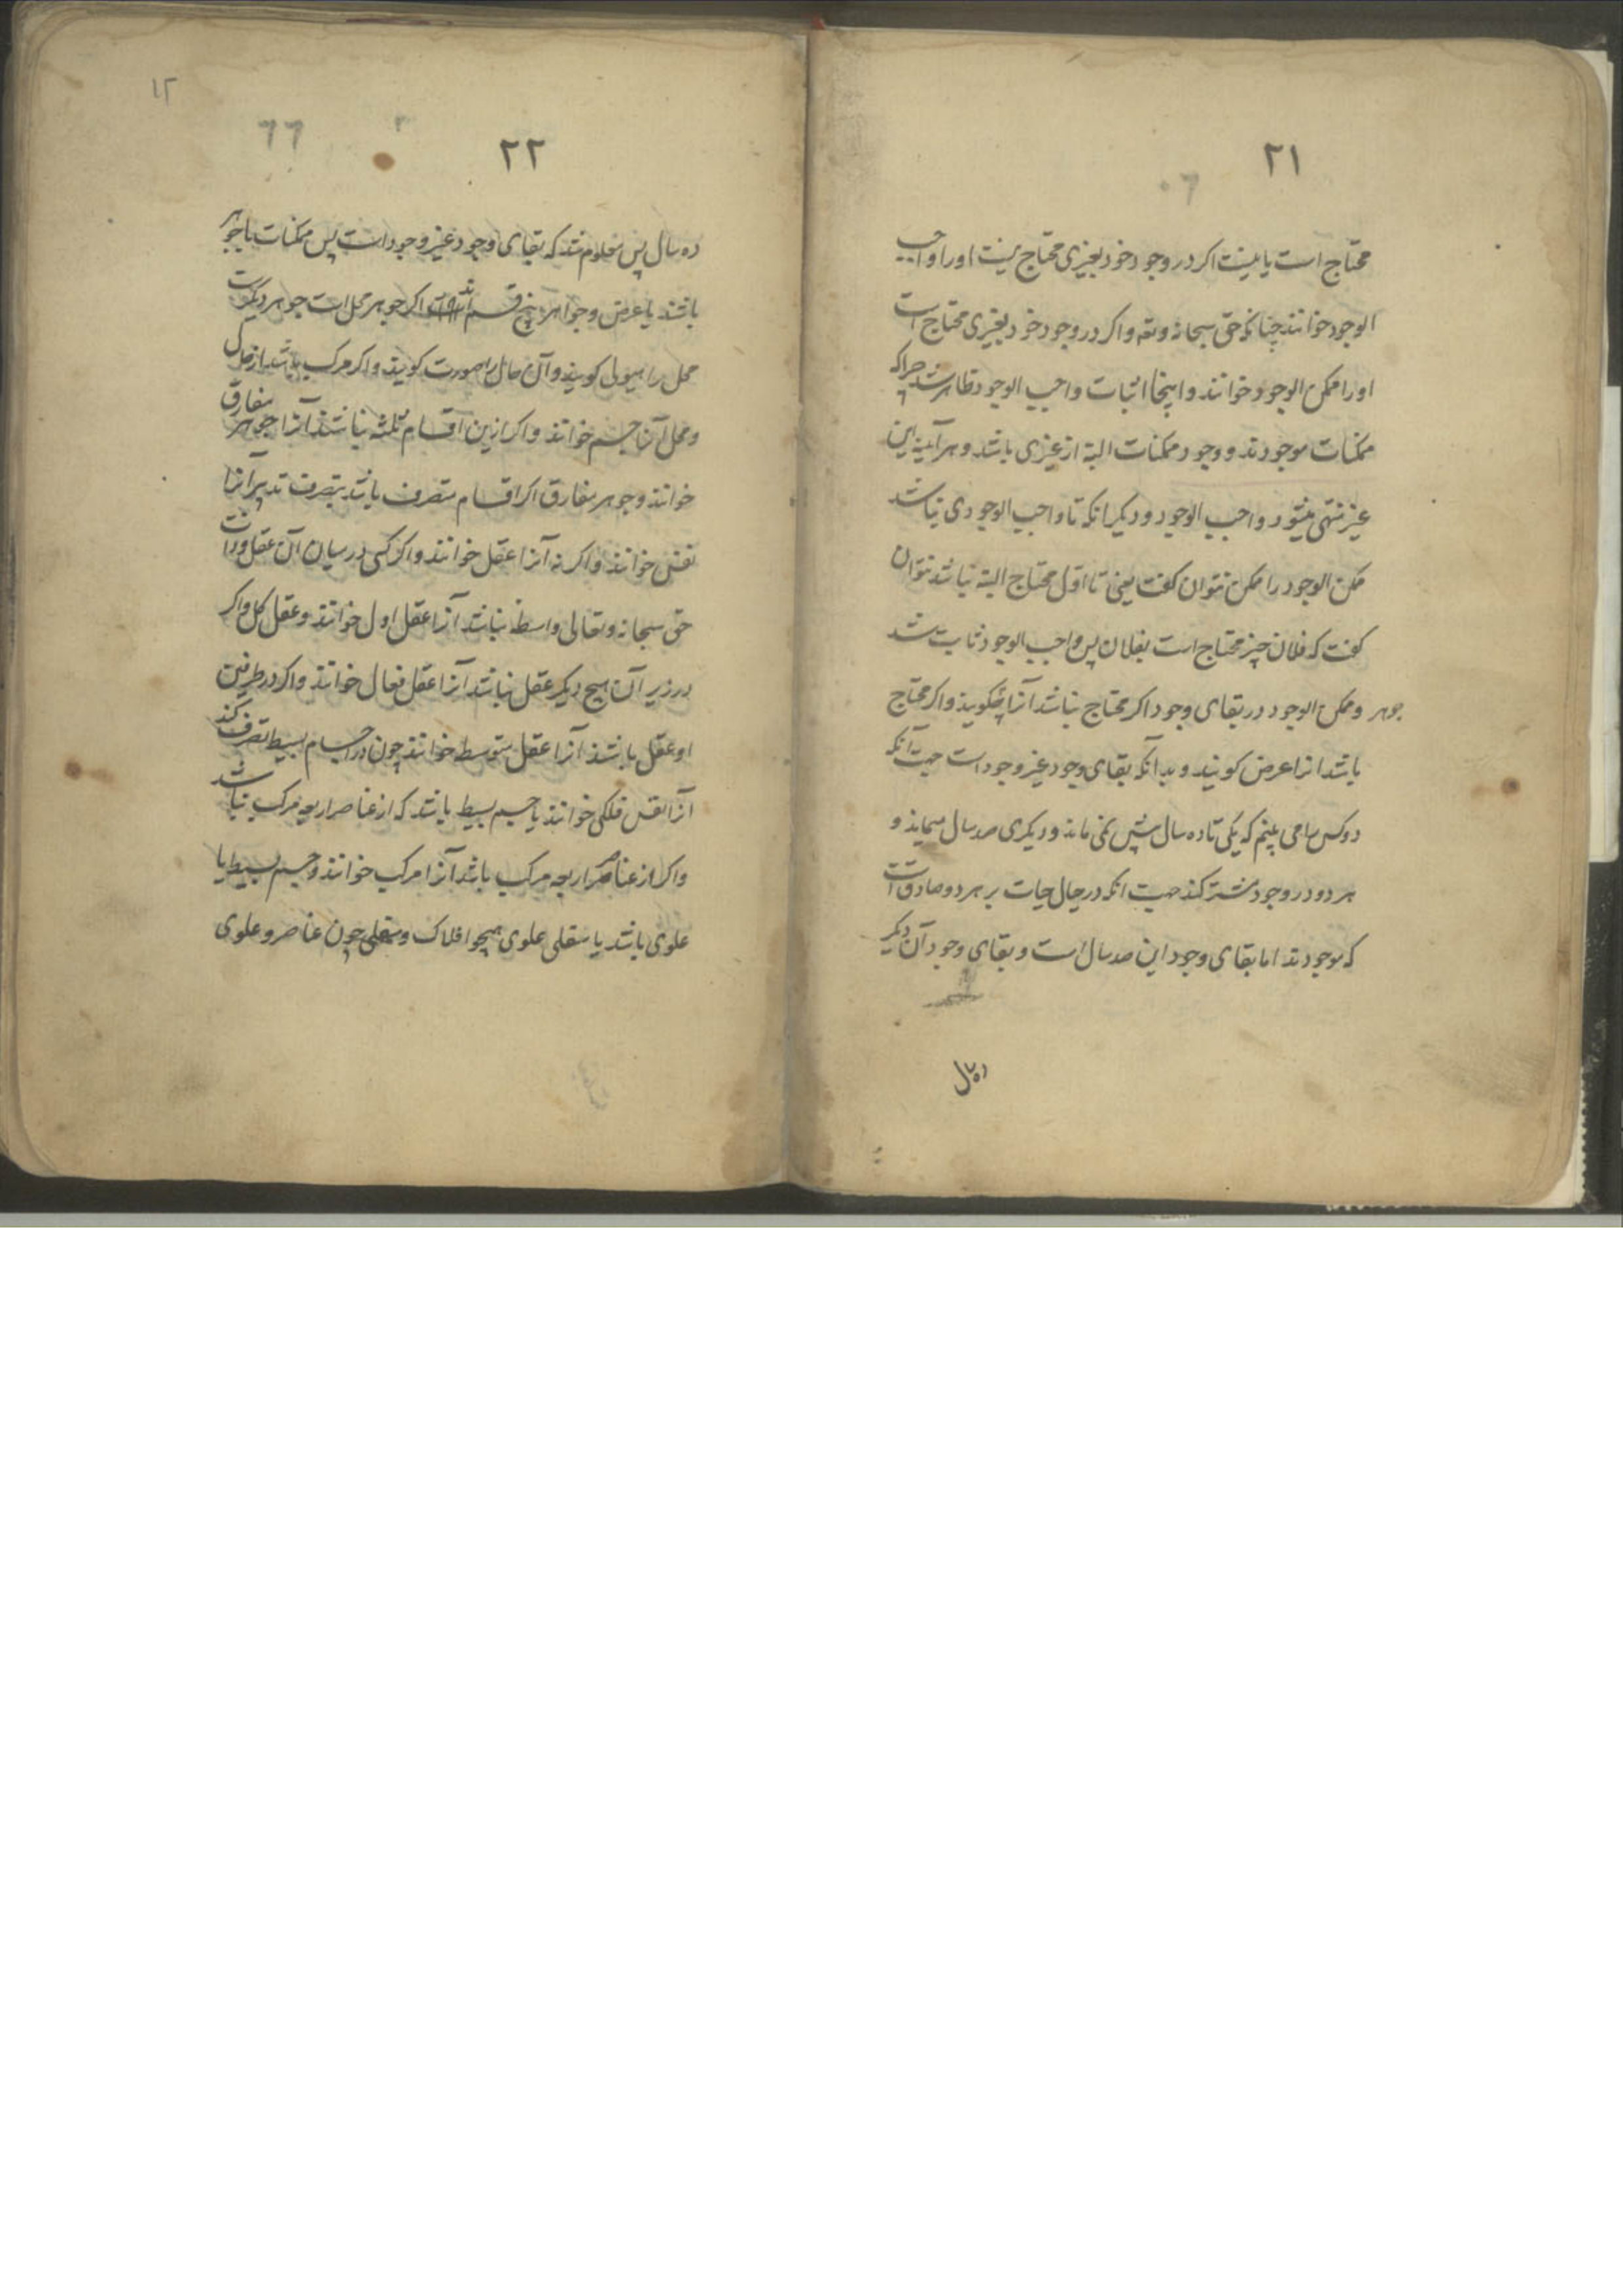 ٢١
محتاج است یا نیست اکر در وجود خود بغیری محتاج نیست اورا واجب
الوجود خوانند چنانکه حق سبحانه وتعه واکر در وجود خود بغیری محتاج است
اورا ممکن الوجود خوانند و اینجا اثبات واجب الوجود ظاهر شد چراکه
ممکنات موجودند و وجود ممکنات البته از غیری باشد و هر آینه این
غیر منتهی میشود بواجب الوجود و دیکر انکه تا واجب الوجودی نباشد
ممکن الوجود را ممکن نتوان کفت یعنی تا اول محتاج الیه نباشد نتوان
کفت که فلان چیز محتاج است بفلان پس واجب الوجود ثابت شد
وممکن الوجود در بقای وجود اکر محتاج نباشد آنرا جوهر کویند واکر محتاج
باشد انرا عرض کویند و بدانکه بقای وجود غیر وجود است جهت آنکه
دو کس را می بینم که یکی تا ده سال بیش نمی ماند و دیکری صد سال میماند و
هر دو در وجود مشترکند جهت انکه در حال حیات بر هر دو صادق است
که موجودند اما بقای وجود این صد سال است و بقای وجود آن دیکر
ده سال
١٢
٦٦
٢٢
ده سال پس معلوم شد که بقای وجود غیر وجود است پس ممکنات یا جوهر
باشند یا عرض و جواهر پنج قسم اند اکر جوهر محل است جوهر دیکرست
محل را هیولی کویند و آن حال را صورت کویند واکر مرکب باشد از حال
ومحل آنرا جسم خوانند واکر ازین اقسام ثلثه نباشد آنرا جوهر مفارق
خوانند وجوهر مفارق اکر اقسام متصرف باشد بتصرف تدبیر آنرا
نفس خوانند واکر نه آنرا عقل خوانند واکر کسی در میان آن عقل وذات
حق سبحانه وتعالی واسطه نباشد آنرا عقل اول خوانند وعقل کل واکر
در زیر آن هیچ دیکر عقل نباشد آنرا عقل فعال خوانند واکر در طرفین
او عقل باشند آنرا عقل متوسط خوانند چون در اجسام بسیط تصرف کند
آنرا نفس فلکی خوانند یا جسم بسیط باشد که از عناصر اربعه مرکب نباشد
واکر از عناصر اربعه مرکب باشد آنرا مرکب خوانند وجسم بسیط یا
علوی باشد یا سفلی علوی همچو افلاک وسفلی چون عناصر وعلوی